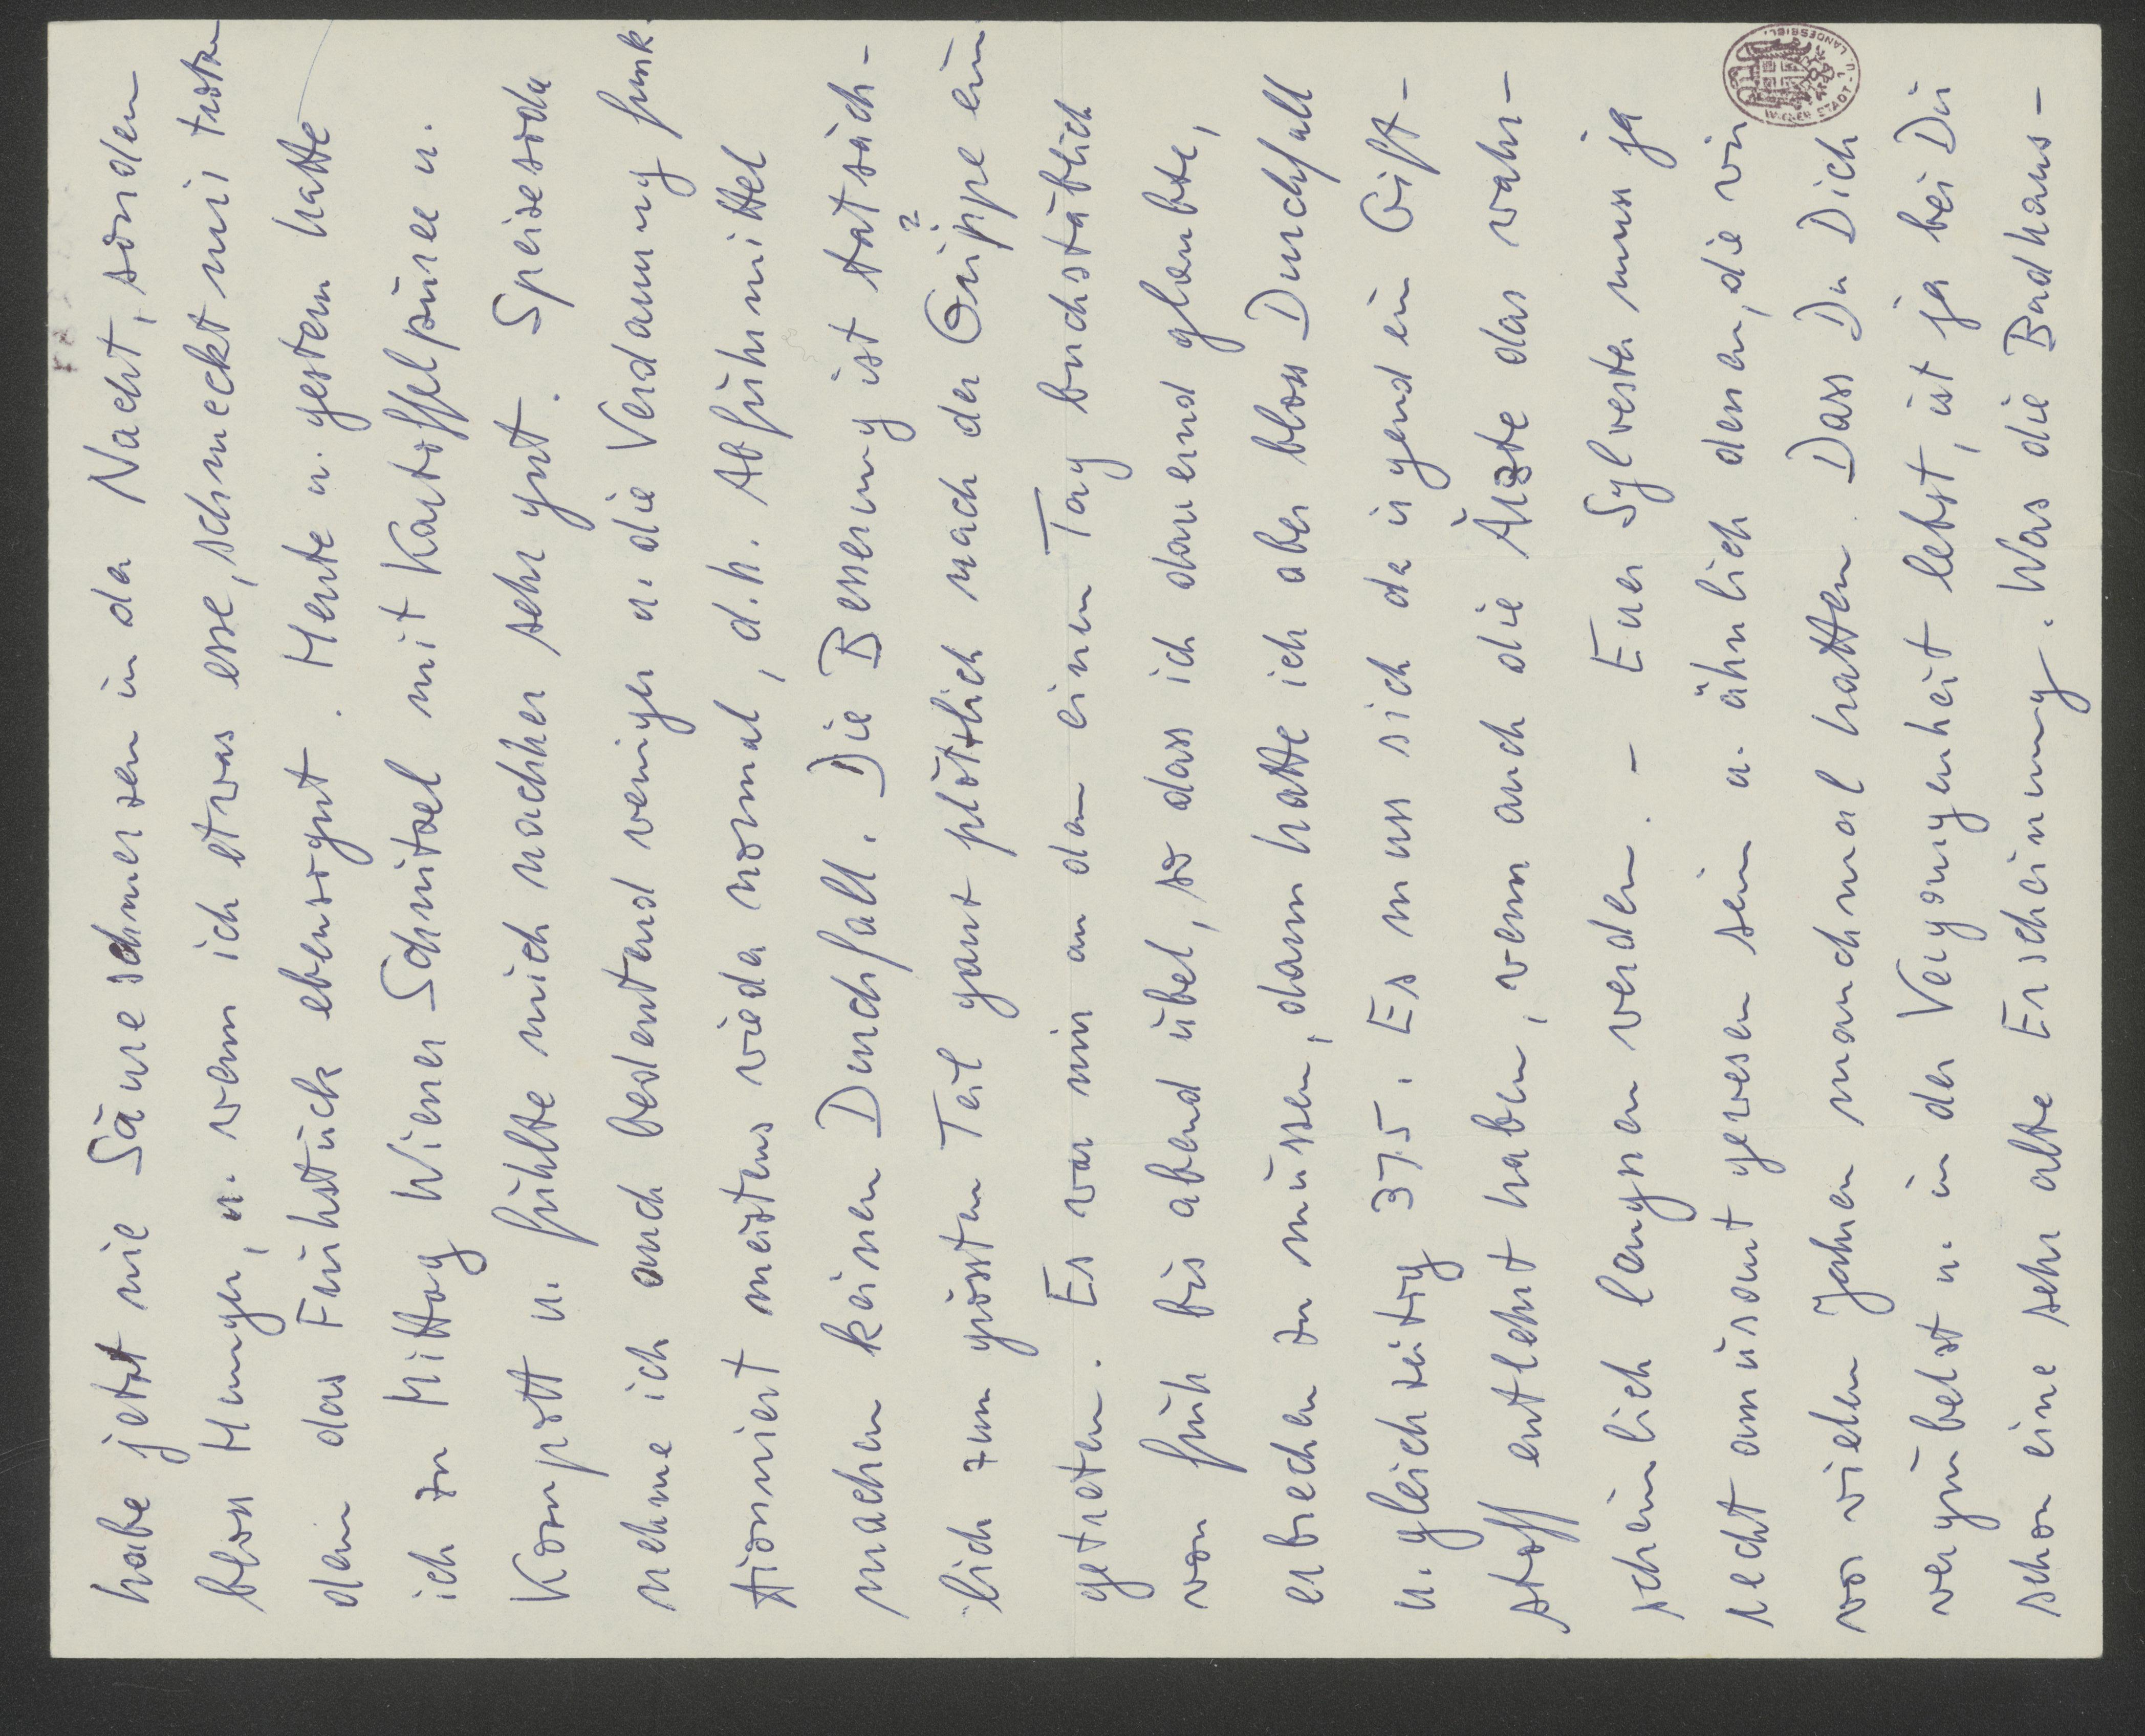 habe jetzt nie Säureschmerzen in der Nacht, sondern
bloss Hunger, u. wenn ich etwas esse, schmeckt mir trotz
dem das Frühstück ebensogut. Heute u. gestern hatte
ich zu Mittag Wiener Schnitzel mit Kartoffelpüree u.
Kompott u. fühlte mich nachher sehr gut. Speisesoda
nehme ich auch bedeutend weniger u. die Verdauung funk
tionniert meistens wieder normal, d.h. Abführmittel
machen keinen Durchfall. Die Besserung ist tatsäch-
lich zum grössten Teil ganz plötzlich nach der Grippe ein
getreten. Es war mir an dem einen Tag buchstäblich
von früh bis abend übel, so dass ich dauernd glaubte,
erbrechen zu müssen, dann hatte ich aber bloss Durchfall
u. gleichzeitig 37.5. Es muss sich da irgend ein Gift-
stoff entleert haben, wenn auch die Ärzte das wahr-
scheinlich leugnen werden. – Euer Sylvester muss ja
recht amüsant gewesen sein u. ähnlich denen, die wir
vor vielen Jahren manchmal hatten. Dass Du Dich
vergrübelst u. in der Vergangenheit lebst, ist ja bei Dir
schon eine sehr alte Erscheinung. Was die Badhaus-
WIENER STADT- U. LANDESBIBL.